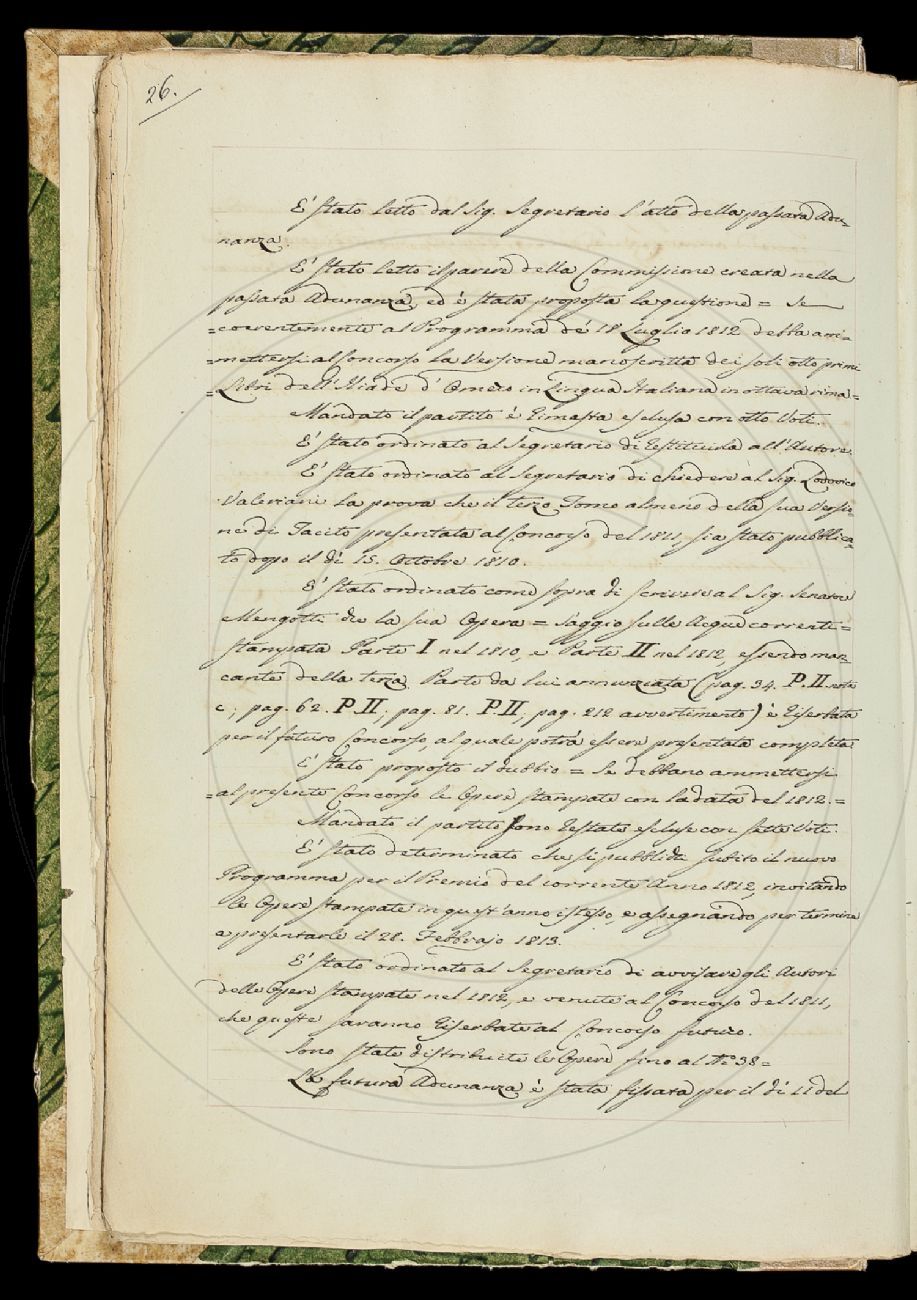 26.
E' stato letto dal Sig. Segretario l'atto della passata Adu-
nanza.
E' stato letto il parere della Commissione creata nella
passata Adunanza, ed è stata proposta la questione = Se
= coerentemente al Programma de' 18 Luglio 1812 debba am-
= mettersi al Concorso la Versione manoscritta dei soli otto primi
= Libri dell'Iliade d'Omero in Lingua Italiana in ottava rima =
Mandato il partito è rimasta esclusa con otto Voti.
E' stato ordinato al Segretario di restituirla all'Autore.
E' stato ordinato al Segretario di chiedere al Sig. Lodovico
Valeriani la prova che il terzo Tomo almeno della sua Versio-
ne di Tacito presentata al Concorso del 1811, sia stato pubblica-
to dopo il dì 15. Ottobre 1810.
E' stato ordinato come sopra di scrivere al Sig. Senatore
Mengotti che la sua Opera = Saggio sulle Acque correnti =
stampata Parte I nel 1810, e Parte II nel 1812, essendo man-
cante della terza Parte da lui annunziata (pag. 34. P. II. nota
c; pag. 62. P. II; pag. 81. P. II, pag. 212 avvertimento) è riserbata
per il futuro Concorso, al quale potrà essere presentata completa
E' stato proposto il dubbio = Se debbano ammettersi
= al presente Concorso le Opere stampate con la data del 1812. =
Mandato il partito sono restate escluse con sette Voti.
E' stato determinato che si pubblichi subito il nuovo
Programma per il Premio del corrente Anno 1812, invitando
le Opere stampate in quest'anno istesso, e assegnando per termine
a presentarle il 28. Febbrajo 1813.
E' stato ordinato al Segretario di avvisare gli Autori
delle Opere stampate nel 1812, e venute al Concorso del 1811,
che queste saranno riserbate al Concorso futuro.
Sono state distribuite le Opere fino al N.o 38 =
La futura Adunanza è stata fissata per il dì 11 del